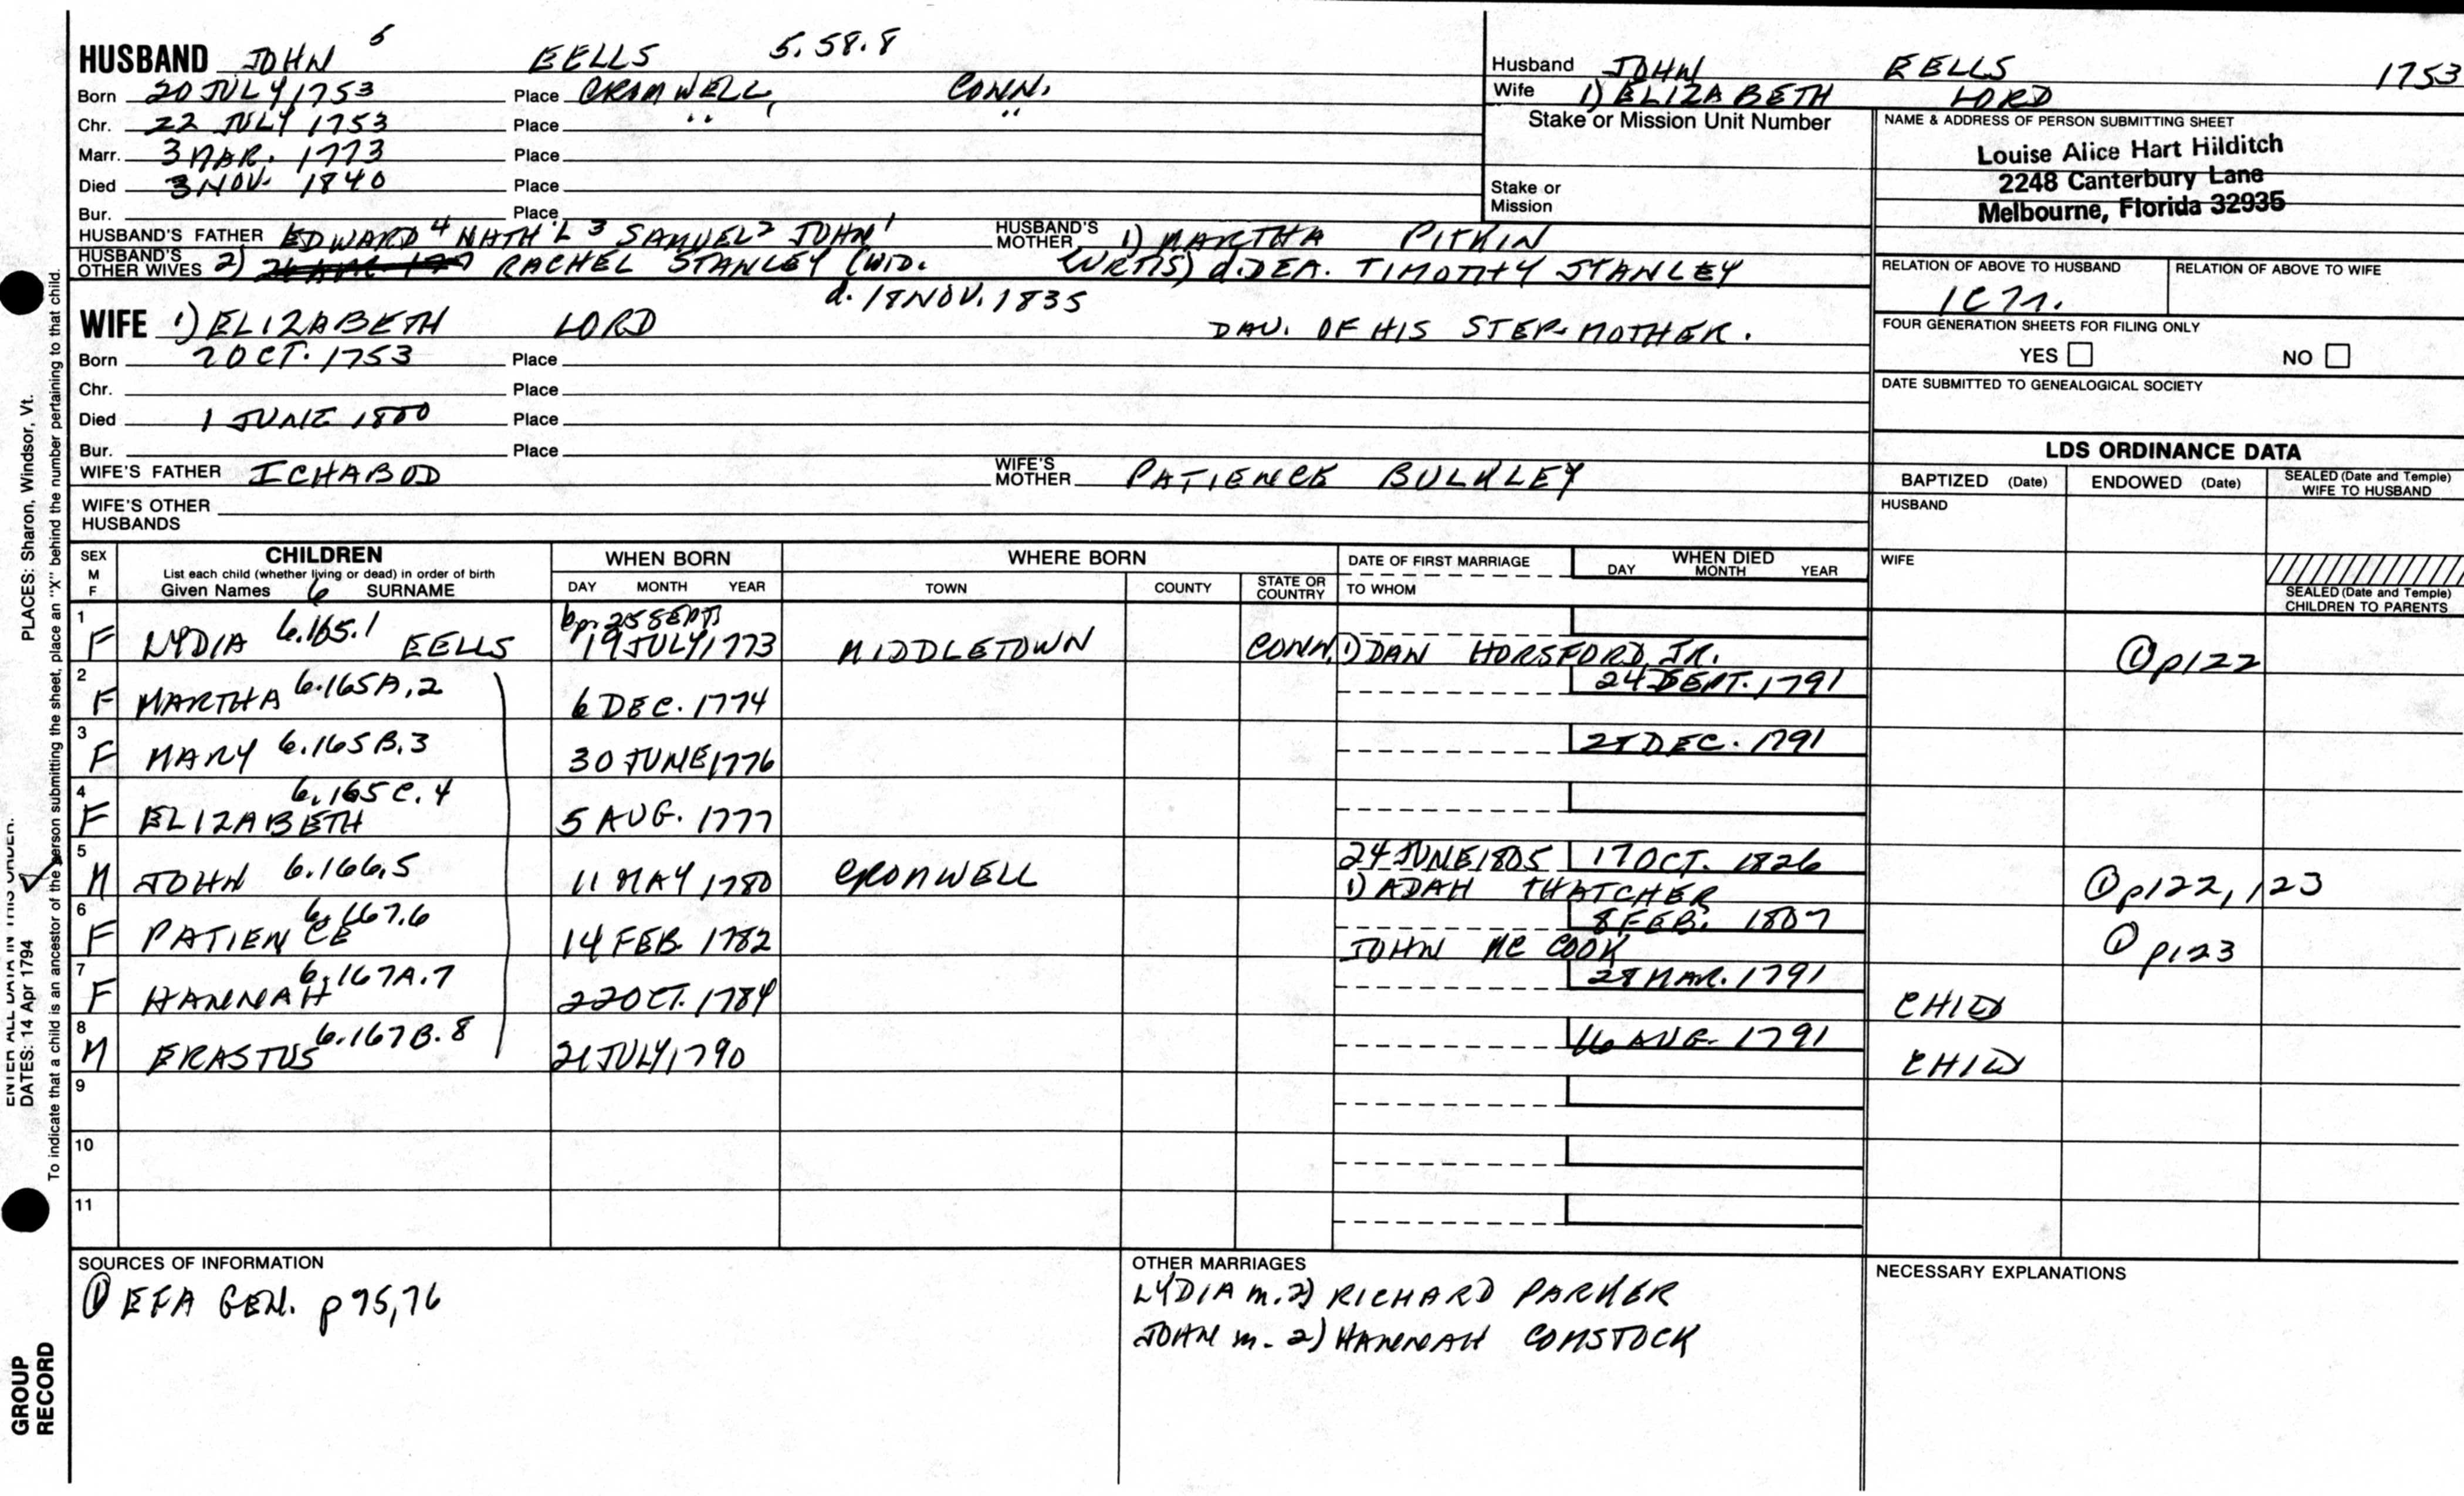 HUSBAND JOHN 5 EELLS 5.58.8
Born 20 JULY, 1753 Place CROMWELL, CONN.
Chr. 22 JULY 1753 Place " "
Marr. 3 MAR. 1773 Place
Died 3 NOV. 1840 Place
Bur. Place
HUSBAND'S FATHER EDWARD 4 NATH'L 3 SAMUEL 2 JOHN 1 HUSBAND'S MOTHER 1) MARTHA PITKIN
HUSBAND'S OTHER WIVES 2) RACHEL STANLEY (WID. CURTIS) d. DEA. TIMOTHY STANLEY
d. 18 NOV. 1835
WIFE 1) ELIZABETH LORD DAU. OF HIS STEP-MOTHER.
Born 2 OCT. 1753 Place
Chr. Place
Died 1 JUNE 1800 Place
Bur. Place
WIFE'S FATHER ICHABOD WIFE'S MOTHER PATIENCE BULKLEY
WIFE'S OTHER HUSBANDS
Husband JOHN EELLS 1753
Wife 1) ELIZABETH LORD
Stake or Mission Unit Number
Stake or Mission
NAME & ADDRESS OF PERSON SUBMITTING SHEET
Louise Alice Hart Hilditch
2248 Canterbury Lane
Melbourne, Florida 32935
RELATION OF ABOVE TO HUSBAND RELATION OF ABOVE TO WIFE
FOUR GENERATION SHEETS FOR FILING ONLY
YES NO
DATE SUBMITTED TO GENEALOGICAL SOCIETY
LDS ORDINANCE DATA
BAPTIZED (Date) ENDOWED (Date) SEALED (Date and Temple) WIFE TO HUSBAND
HUSBAND
WIFE
SEALED (Date and Temple) CHILDREN TO PARENTS
SEX M F CHILDREN WHEN BORN WHERE BORN DATE OF FIRST MARRIAGE WHEN DIED
List each child (whether living or dead) in order of birth
Given Names 6 SURNAME DAY MONTH YEAR TOWN COUNTY STATE OR COUNTRY TO WHOM DAY MONTH YEAR
bp. 25 SEPT.
1 F LYDIA 6.165.1 EELLS 19 JULY, 1773 MIDDLETOWN CONN. 1) DAN HORSFORD, JR. ① p122
2 F MARTHA 6.165A.2 6 DEC. 1774 24 SEPT. 1791
3 F MARY 6.165B.3 30 JUNE, 1776 DEC. 1791
4 F ELIZABETH 6.165C.4 5 AUG. 1777
5 M JOHN 6.166.5 11 MAY, 1780 CROMWELL 24 JUNE 1805 17 OCT. 1826
1) ADAH THATCHER ① p122, 123
6 F PATIENCE 6.167.6 14 FEB. 1782 8 FEB. 1807
JOHN MC COOK ① p123
7 F HANNAH 6.167A.7 22 OCT. 1784 28 MAR. 1791 CHILD
8 M ERASTUS 6.167B.8 21 JULY, 1790 16 AUG. 1791 CHILD
9
10
11
SOURCES OF INFORMATION
① EFA GEN. p 75, 76
OTHER MARRIAGES
LYDIA m. 2) RICHARD PARKER
JOHN m. 2) HANNAH COMSTOCK
NECESSARY EXPLANATIONS
PLACES: Sharon, Windsor, Vt.
ENTER ALL DATA IN THIS ORDER:
DATES: 14 Apr 1794
To indicate that a child is an ancestor of the person submitting the sheet, place an "X" behind the number pertaining to that child.
GROUP
RECORD